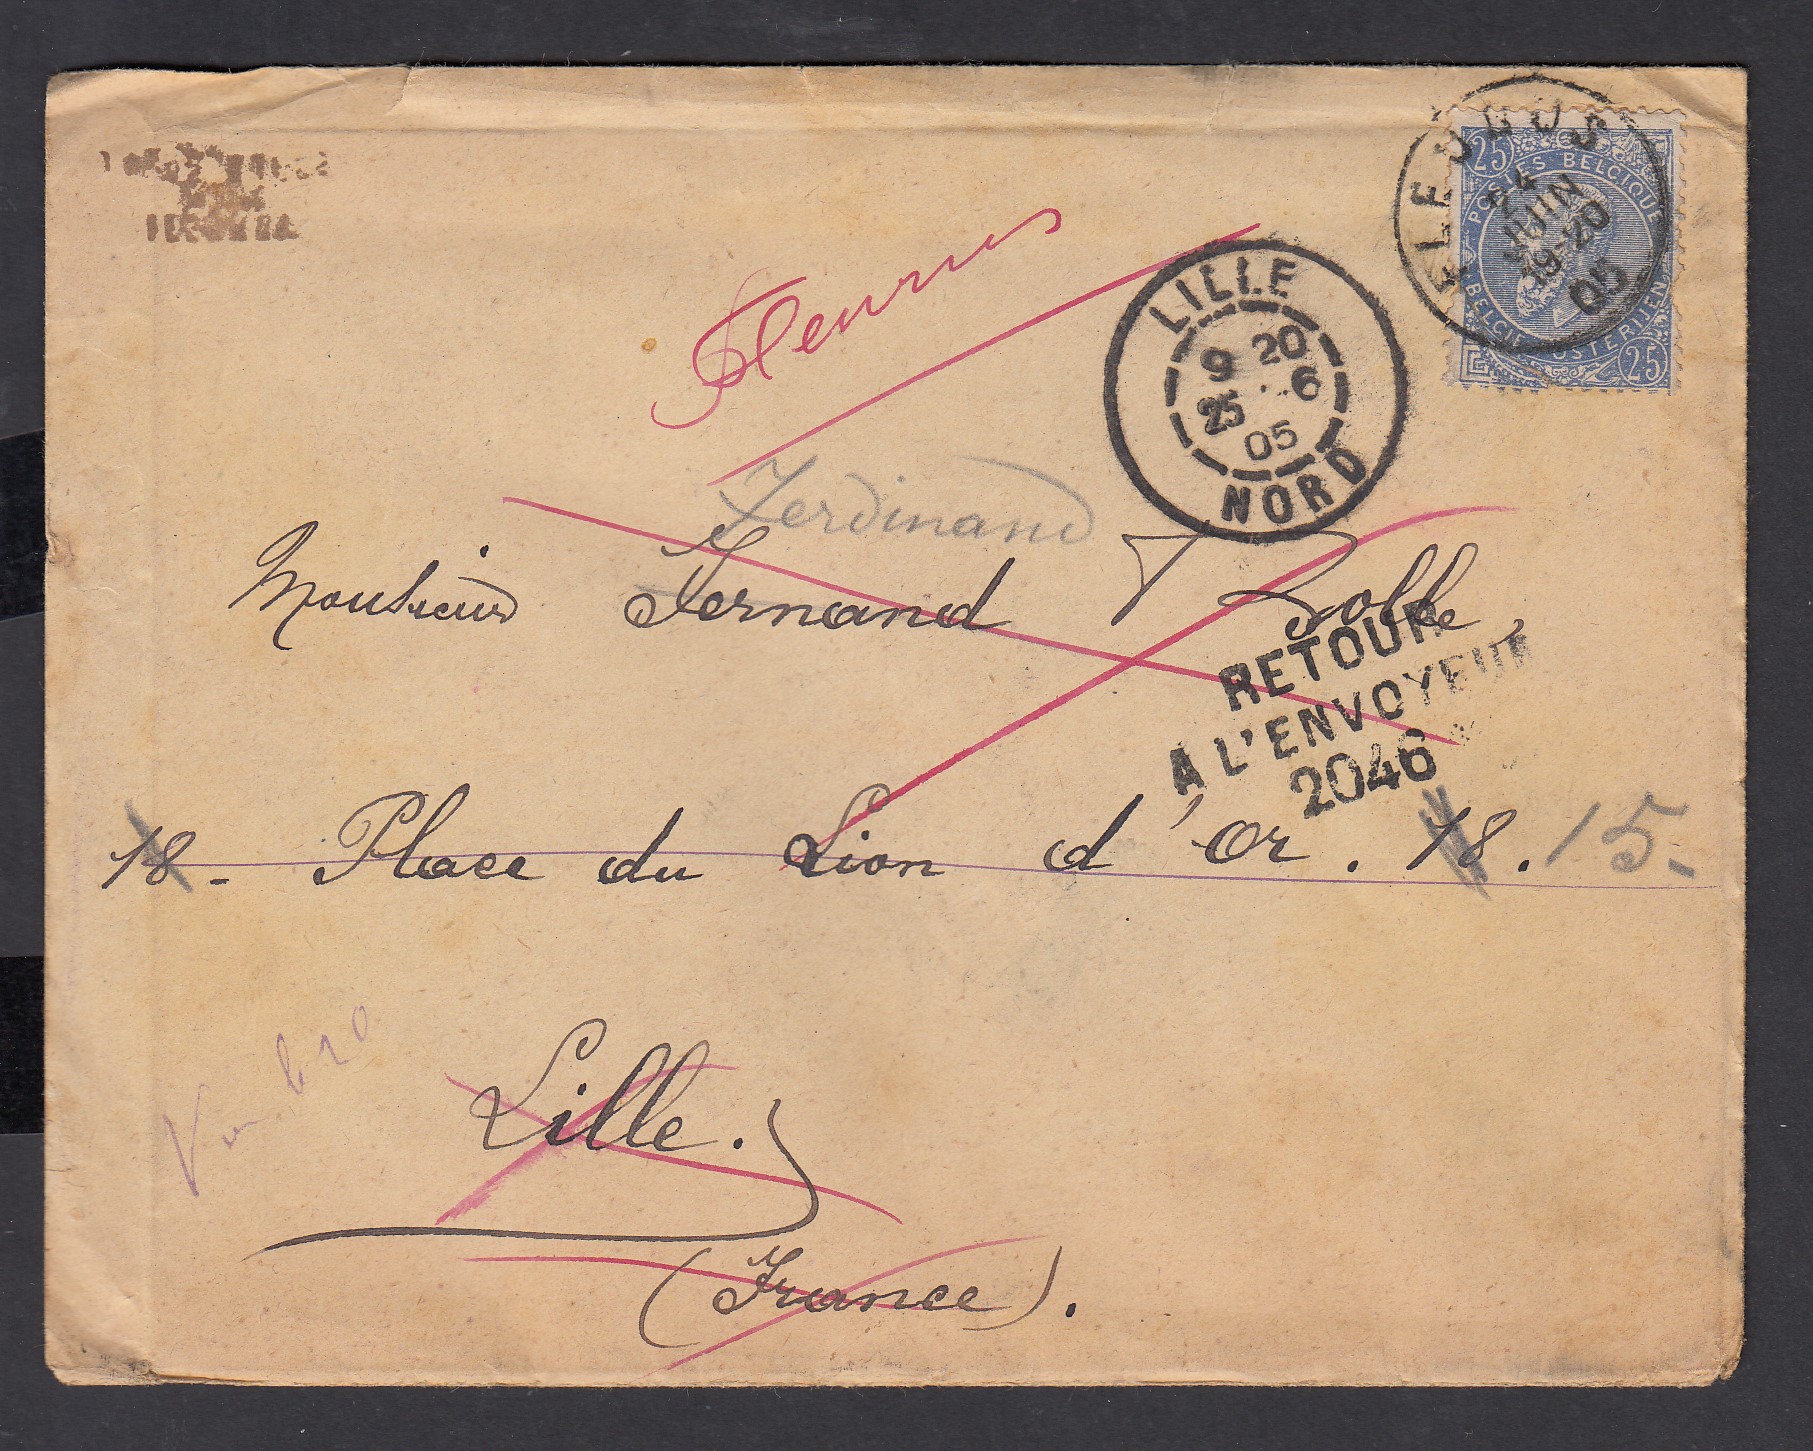 25
POSTES BELGIQUE
BELGIE POSTERIJEN
25
24
JUIN
19-20
05
LILLE
9 20
25 6
05
NORD
Fleurus
Ferdinand
Monsieur Fernand Jolle,
RETOUR
A L'ENVOYEUR
2046
18 - Place du Lion d'Or. 18. 15-
Lille.
(France).